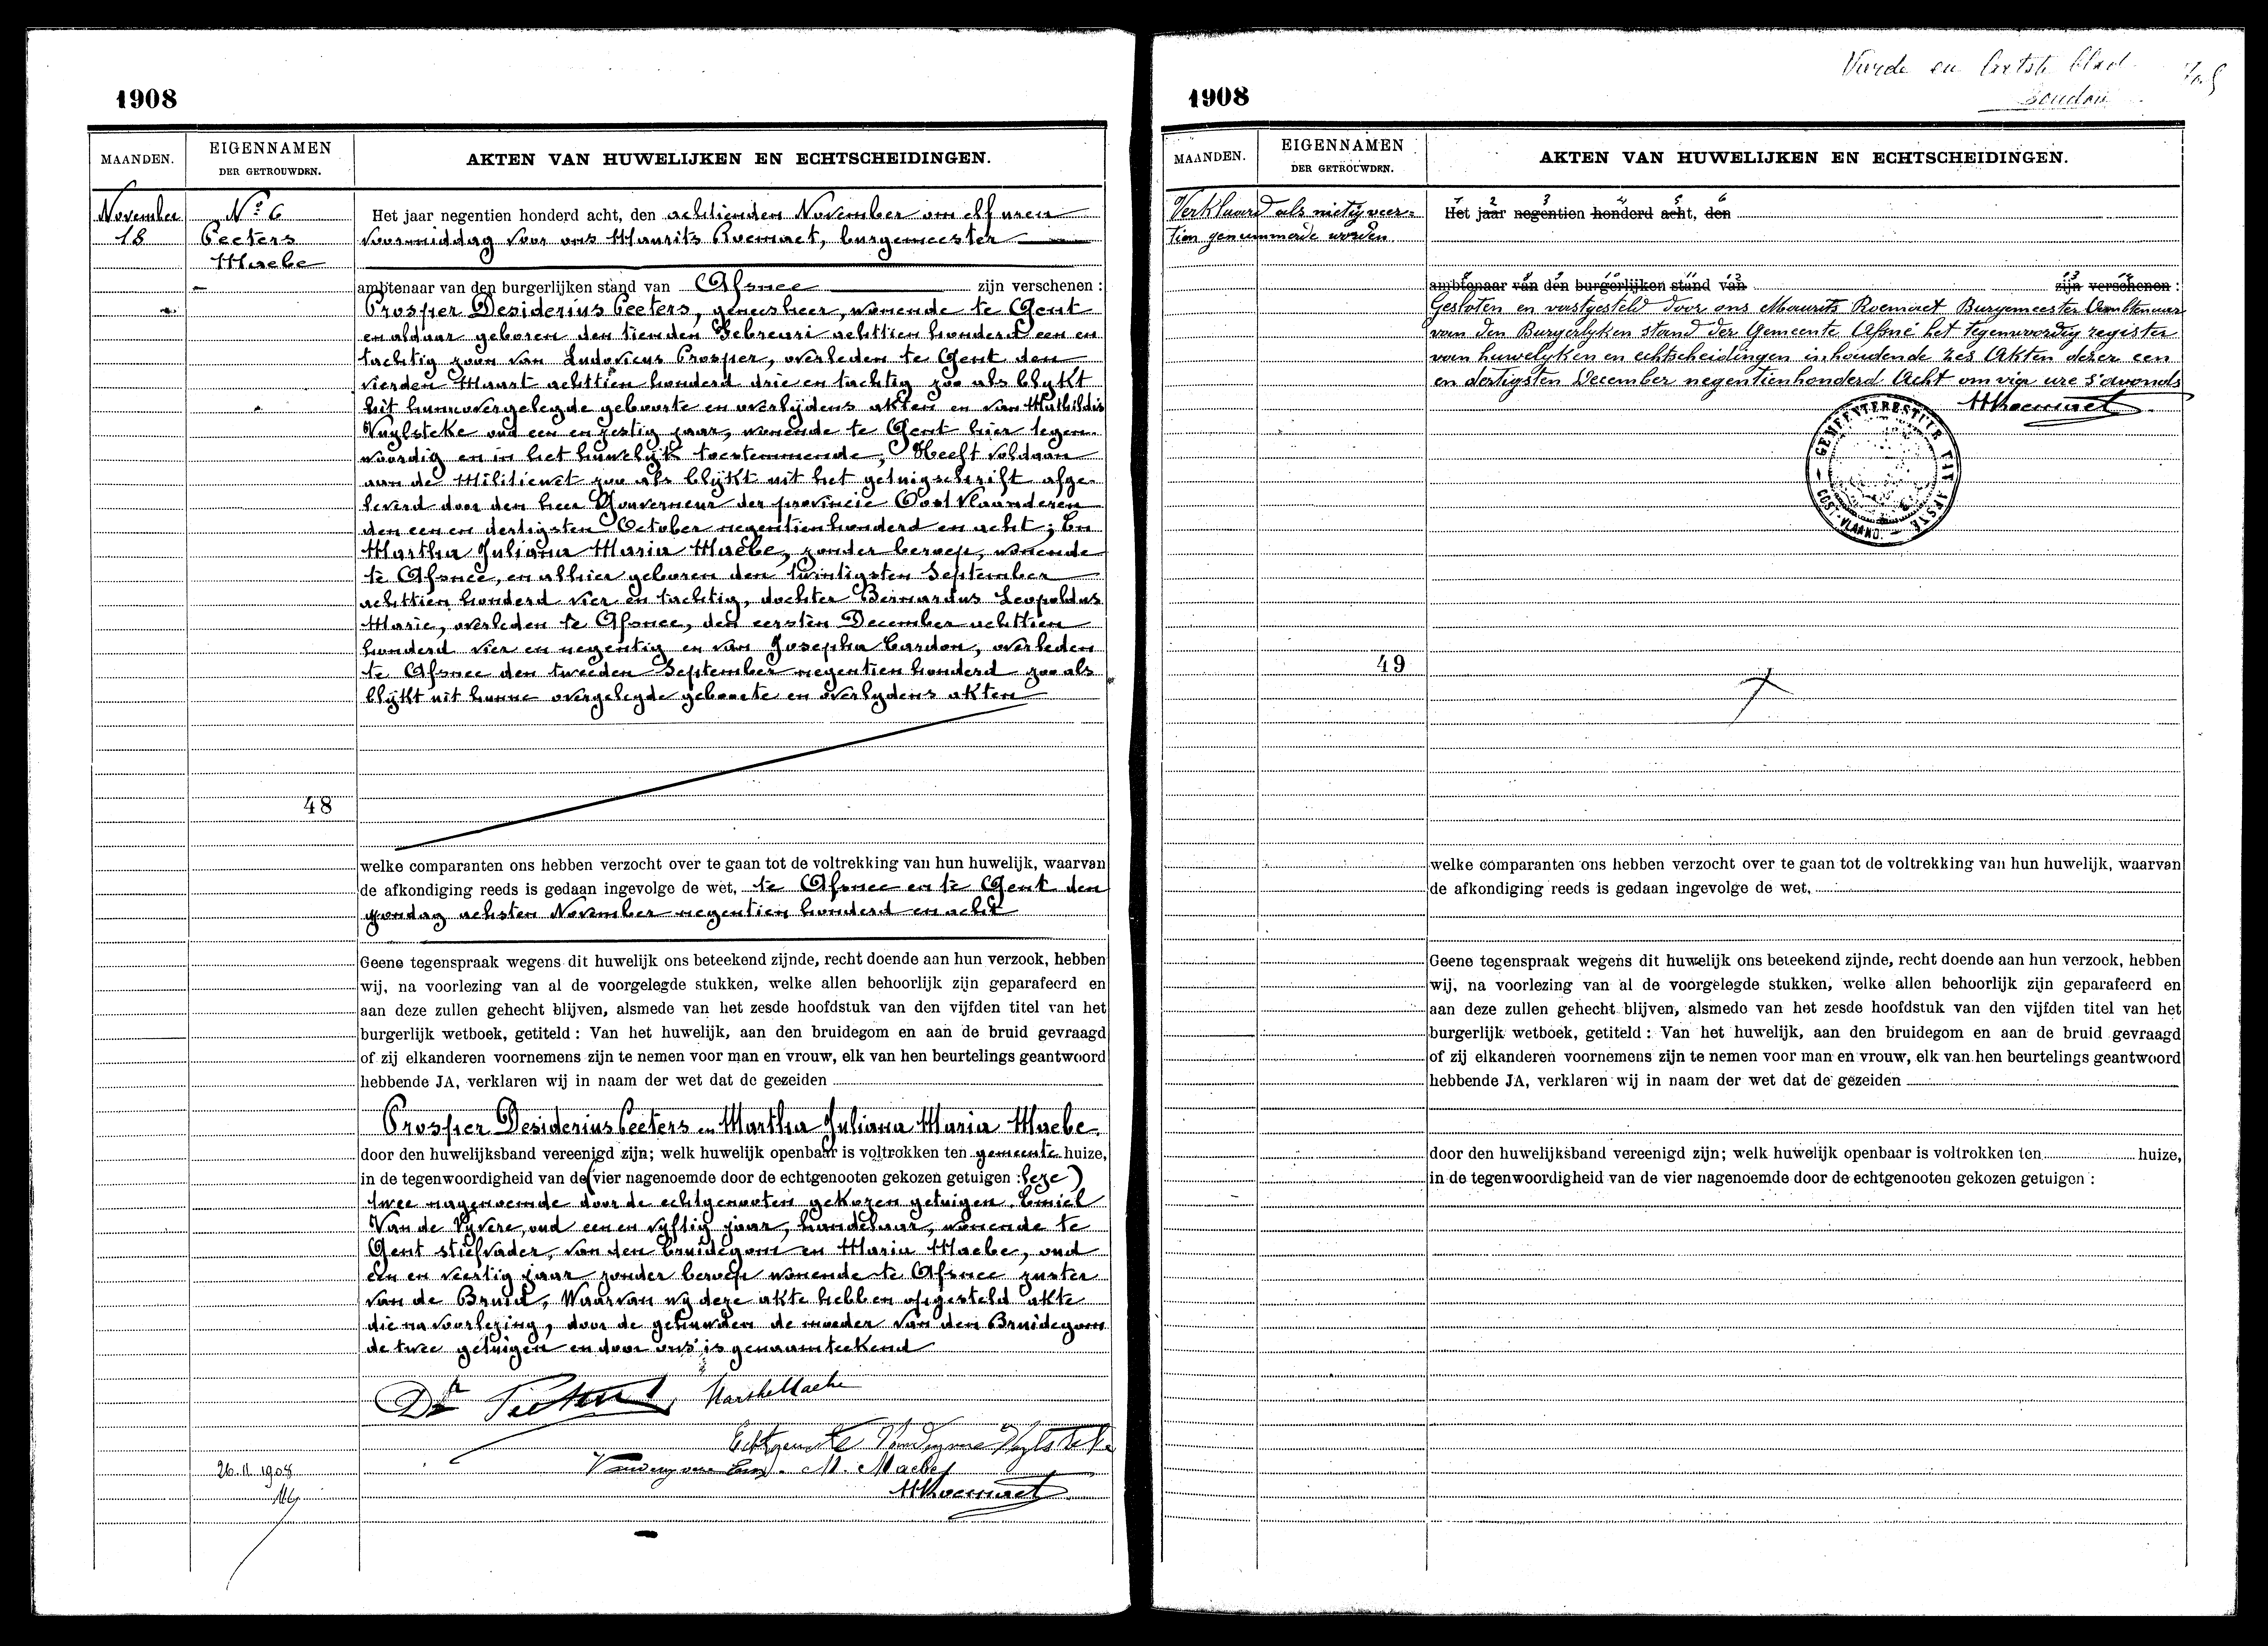 1908
MAANDEN.
EIGENNAMEN
DER GETROUWDEN.
AKTEN VAN HUWELIJKEN EN ECHTSCHEIDINGEN.
November
18
No 6
Peeters
Maebe
Het jaar negentien honderd acht, den achtienden November om elf uren
voormiddag voor ons Maurits Roemaet, burgemeester
ambtenaar van den burgerlijken stand van Afsnee zijn verschenen :
Prosper Desiderius Peeters, geneesheer, wonende te Gent
en aldaar geboren den tienden Februari achttien honderd een en
tachtig zoon van Ludovicus Prosper, overleden te Gent den
vierden Maart achttien honderd drie en tachtig zoo als blykt
uit hunne overgelegde geboorte en overlijdens akten en van Mathildis
Vuylsteke oud een en zestig jaar, wonende te Gent hier tegen-
woordig en in het huwelijk toestemmende; Heeft voldaan
aan de Militiewet zoo als blijkt uit het getuigschrift afge-
leverd door den heer Gouverneur der provincie Oost Vlaanderen
den een en dertigsten October negentien honderd en acht; En
Martha Juliana Maria Maebe, zonder beroep, wonende
te Afsnee, en alhier geboren den twintigsten September
achttien honderd vier en tachtig, dochter Bernardus Leopoldus
Marie, overleden te Afsnee, den eersten December achttien
honderd vier en negentig en van Josepha Cardon, overleden
te Afsnee den tweeden September negentien honderd zoo als
blijkt uit hunne overgelegde geboorte en overlydens akten
48
welke comparanten ons hebben verzocht over te gaan tot de voltrekking van hun huwelijk, waarvan
de afkondiging reeds is gedaan ingevolge de wet, te Afsnee en te Gent den
zondag achsten November negentien honderd en acht
Geene tegenspraak wegens dit huwelijk ons beteekend zijnde, recht doende aan hun verzoek, hebben
wij, na voorlezing van al de voorgelegde stukken, welke allen behoorlijk zijn geparafeerd en
aan deze zullen gehecht blijven, alsmede van het zesde hoofdstuk van den vijfden titel van het
burgerlijk wetboek, getiteld : Van het huwelijk, aan den bruidegom en aan de bruid gevraagd
of zij elkanderen voornemens zijn te nemen voor man en vrouw, elk van hen beurtelings geantwoord
hebbende JA, verklaren wij in naam der wet dat de gezeiden
Prosper Desiderius Peeters en Martha Juliana Maria Maebe
door den huwelijksband vereenigd zijn; welk huwelijk openbaar is voltrokken ten gemeente huize,
in de tegenwoordigheid van de (vier nagenoemde door de echtgenooten gekozen getuigen : leze)
twee nagenoemde door de echtgenooten gekozen getuigen. Emiel
Van de Vyvere, oud een en vyftig jaar, handelaar, wonende te
Gent stiefvader, van den bruidegom en Maria Maebe, oud
een en veertig jaar zonder beroep wonende te Afsnee zuster
van de Bruid, Waarvan wij deze akte hebben opgesteld akte
die na voorlezing, door de gehuwden de moeder van den Bruidegom
de twee getuigen en door ons is genaamteekend
Dr Peeters Marthe Maebe
Echtgenoote Vandevyvere Vuylsteke
Vandevyvere Em. M. Maebe
MRoemaet
26.11.1908
1908
Vierde en laatste blad
MAANDEN.
EIGENNAMEN
DER GETROUWDEN.
AKTEN VAN HUWELIJKEN EN ECHTSCHEIDINGEN.
Verklaard als nietig veer-
tien genummerde worden
1 2 3 4 5 6
Het jaar negentien honderd acht, den
7 8 9 10 11 12 13 14
ambtenaar van den burgerlijken stand van zijn verschenen :
Gesloten en vastgesteld door ons Maurits Roemaet Burgemeester Ambtenaar
van den Burgerlyken stand der Gemeente Afsné het tegenwoordig register
van huwelyken en echtscheidingen inhoudende zes Akten dezer een
en dertigsten December negentienhonderd Acht om vier ure s'avonds
MRoemaet
GEMEENTEBESTUUR VAN AFSNÉ
OOST-VLAAND.
49
welke comparanten ons hebben verzocht over te gaan tot de voltrekking van hun huwelijk, waarvan
de afkondiging reeds is gedaan ingevolge de wet,
Geene tegenspraak wegens dit huwelijk ons beteekend zijnde, recht doende aan hun verzoek, hebben
wij, na voorlezing van al de voorgelegde stukken, welke allen behoorlijk zijn geparafeerd en
aan deze zullen gehecht blijven, alsmede van het zesde hoofdstuk van den vijfden titel van het
burgerlijk wetboek, getiteld : Van het huwelijk, aan den bruidegom en aan de bruid gevraagd
of zij elkanderen voornemens zijn te nemen voor man en vrouw, elk van hen beurtelings geantwoord
hebbende JA, verklaren wij in naam der wet dat de gezeiden
door den huwelijksband vereenigd zijn; welk huwelijk openbaar is voltrokken ten huize,
in de tegenwoordigheid van de vier nagenoemde door de echtgenooten gekozen getuigen :